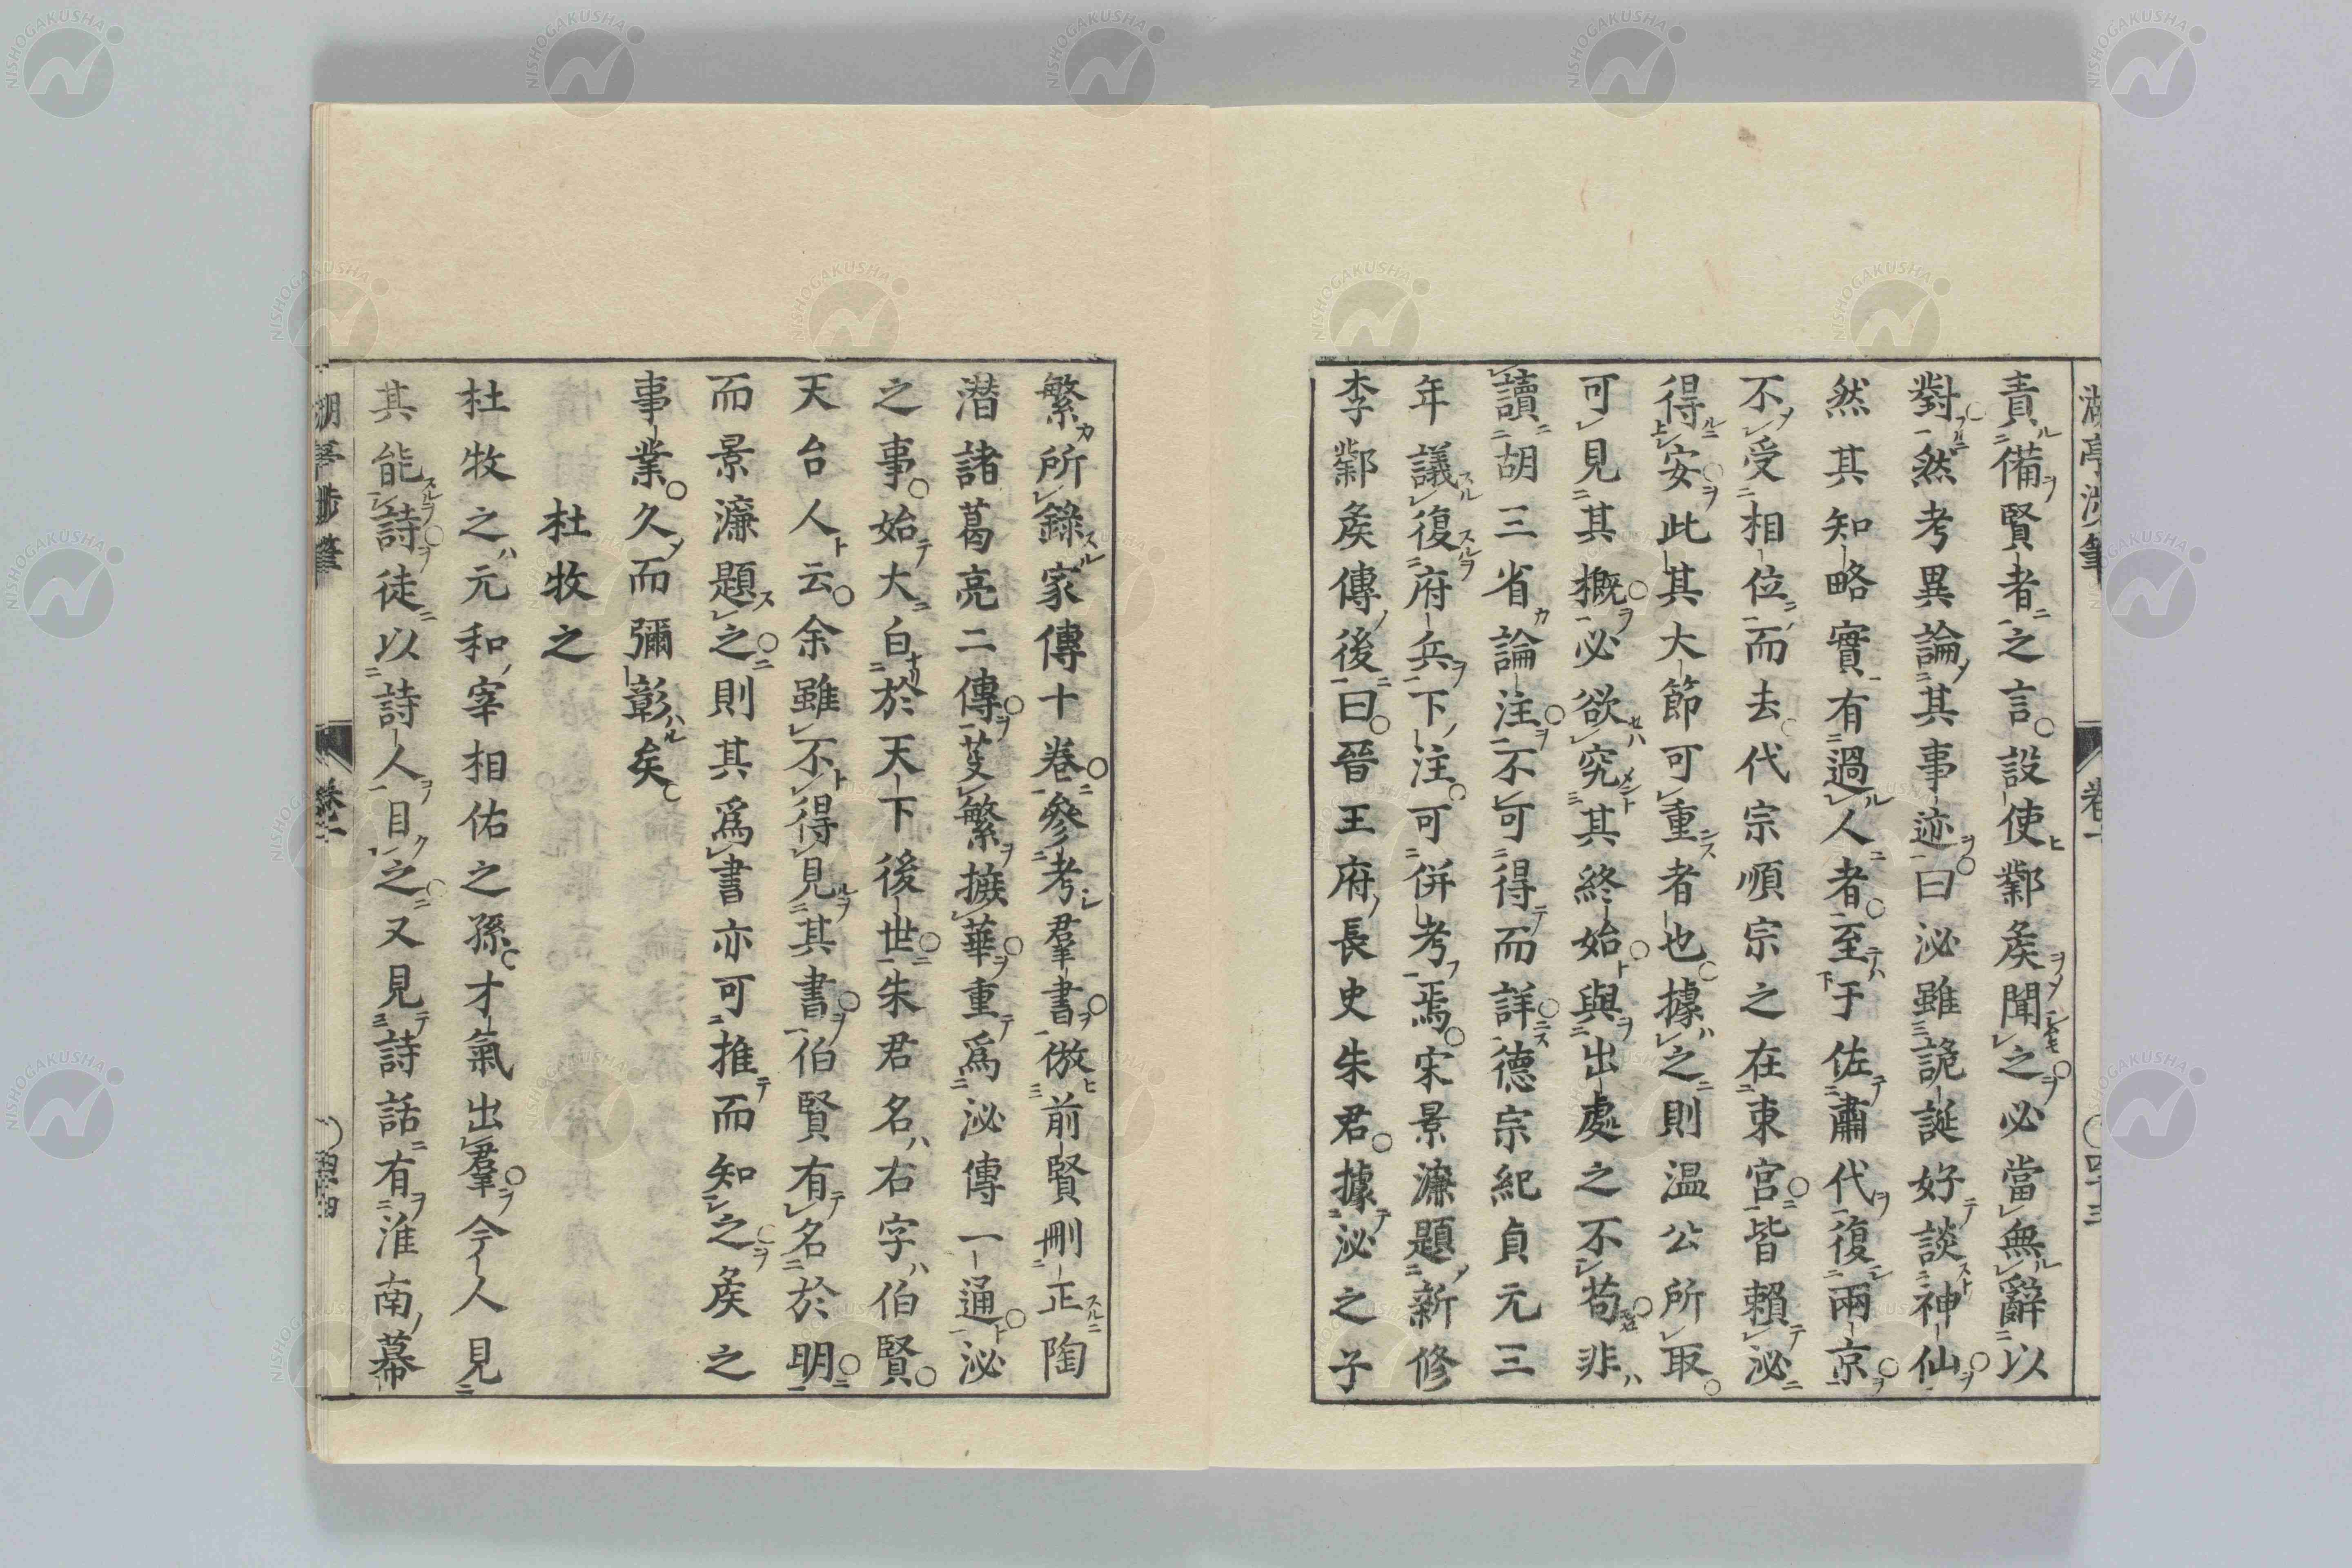 責備賢者之言設使鄴矦聞之必當無辭以
對然考異論其事迹曰泌雖詭誕好談神仙
然其知略實有過人者至于佐肅代復兩京
不受相位而去代宗順宗之在東宮皆賴泌
得安此其大節可重者也據之則温公所取
可見其概必欲究其終始與出處之不苟非
讀胡三省論注不可得而詳德宗紀貞元三
年議復府兵下注可併考焉宋景濂題新修
李鄴矦傳後曰晉王府長史朱君據泌之子
繁所錄家傳十卷參考羣書倣前賢刪正陶
潛諸葛亮二傳芟繁摭華重爲泌傳一通泌
之事始大白於天下後世朱君名右字伯賢
天台人云余雖不得見其書伯賢有名於明
而景濂題之則其爲書亦可推而知之矦之
事業久而彌彰矣
杜牧之
杜牧之元和宰相佑之孫才氣出羣今人見
其能詩徒以詩人目之又見詩話有淮南幕
湖亭涉筆
卷一
四十三
NISHOGAKUSHA